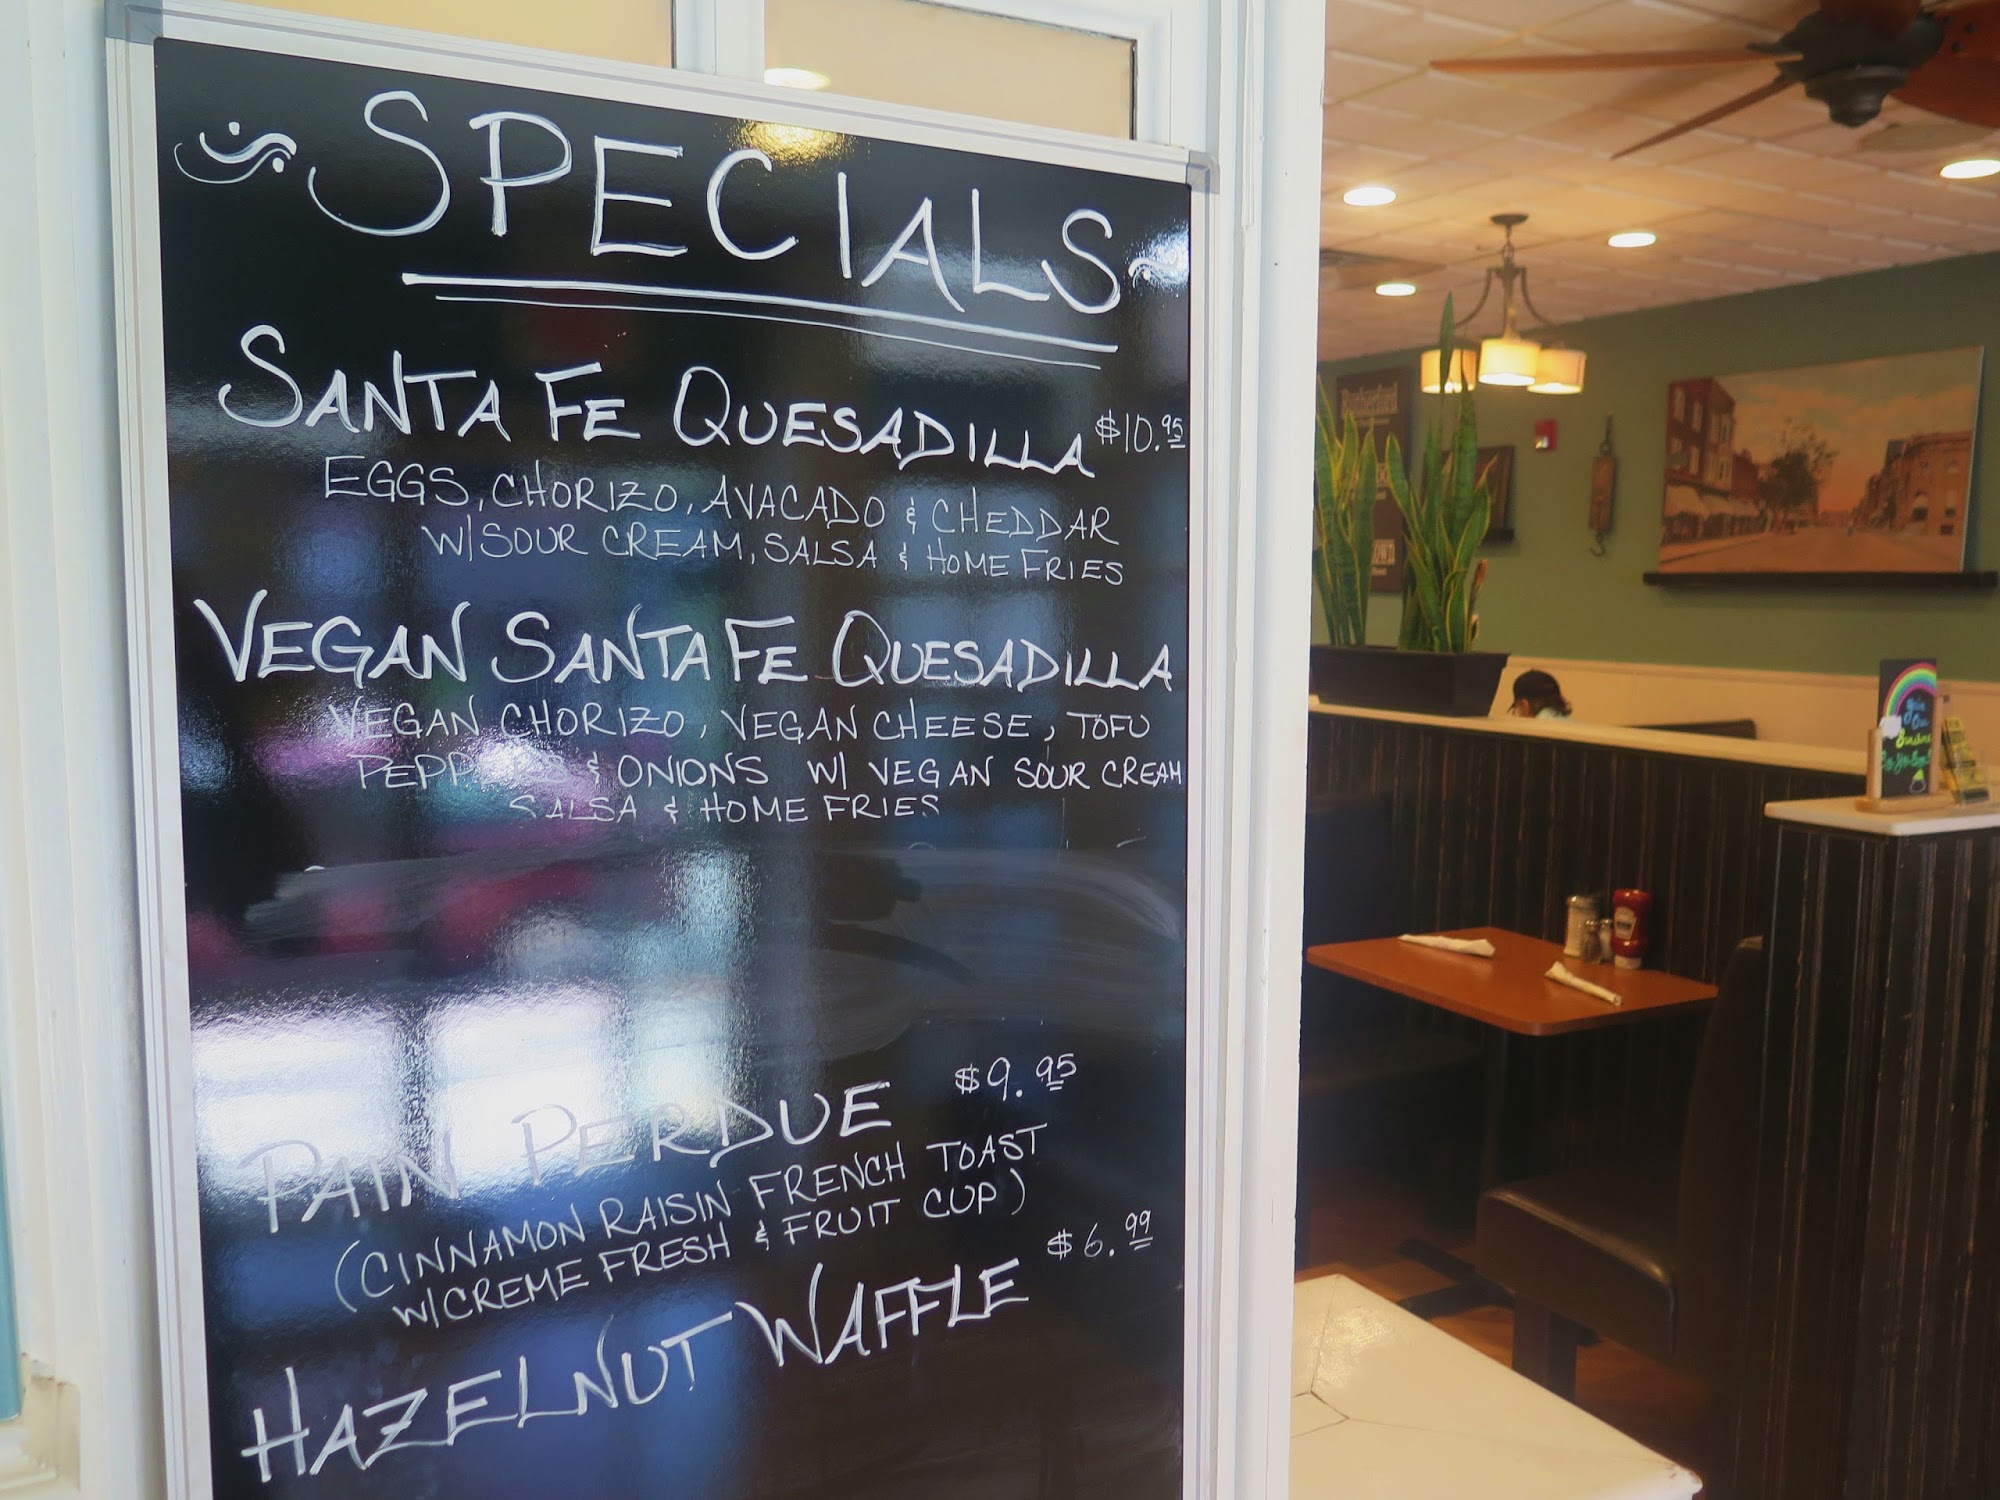 SPECIALS
SANTA FE QUESADILLA $10.95
EGGS, CHORIZO, AVACADO & CHEDDAR
W/SOUR CREAM, SALSA & HOME FRIES
VEGAN SANTA FE QUESADILLA
VEGAN CHORIZO, VEGAN CHEESE, TOFU
PEPPERS & ONIONS W/ VEGAN SOUR CREAM
SALSA & HOME FRIES
PAIN PERDUE $9.95
(CINNAMON RAISIN FRENCH TOAST
W/CREME FRESH & FRUIT CUP)
HAZELNUT WAFFLE $6.99